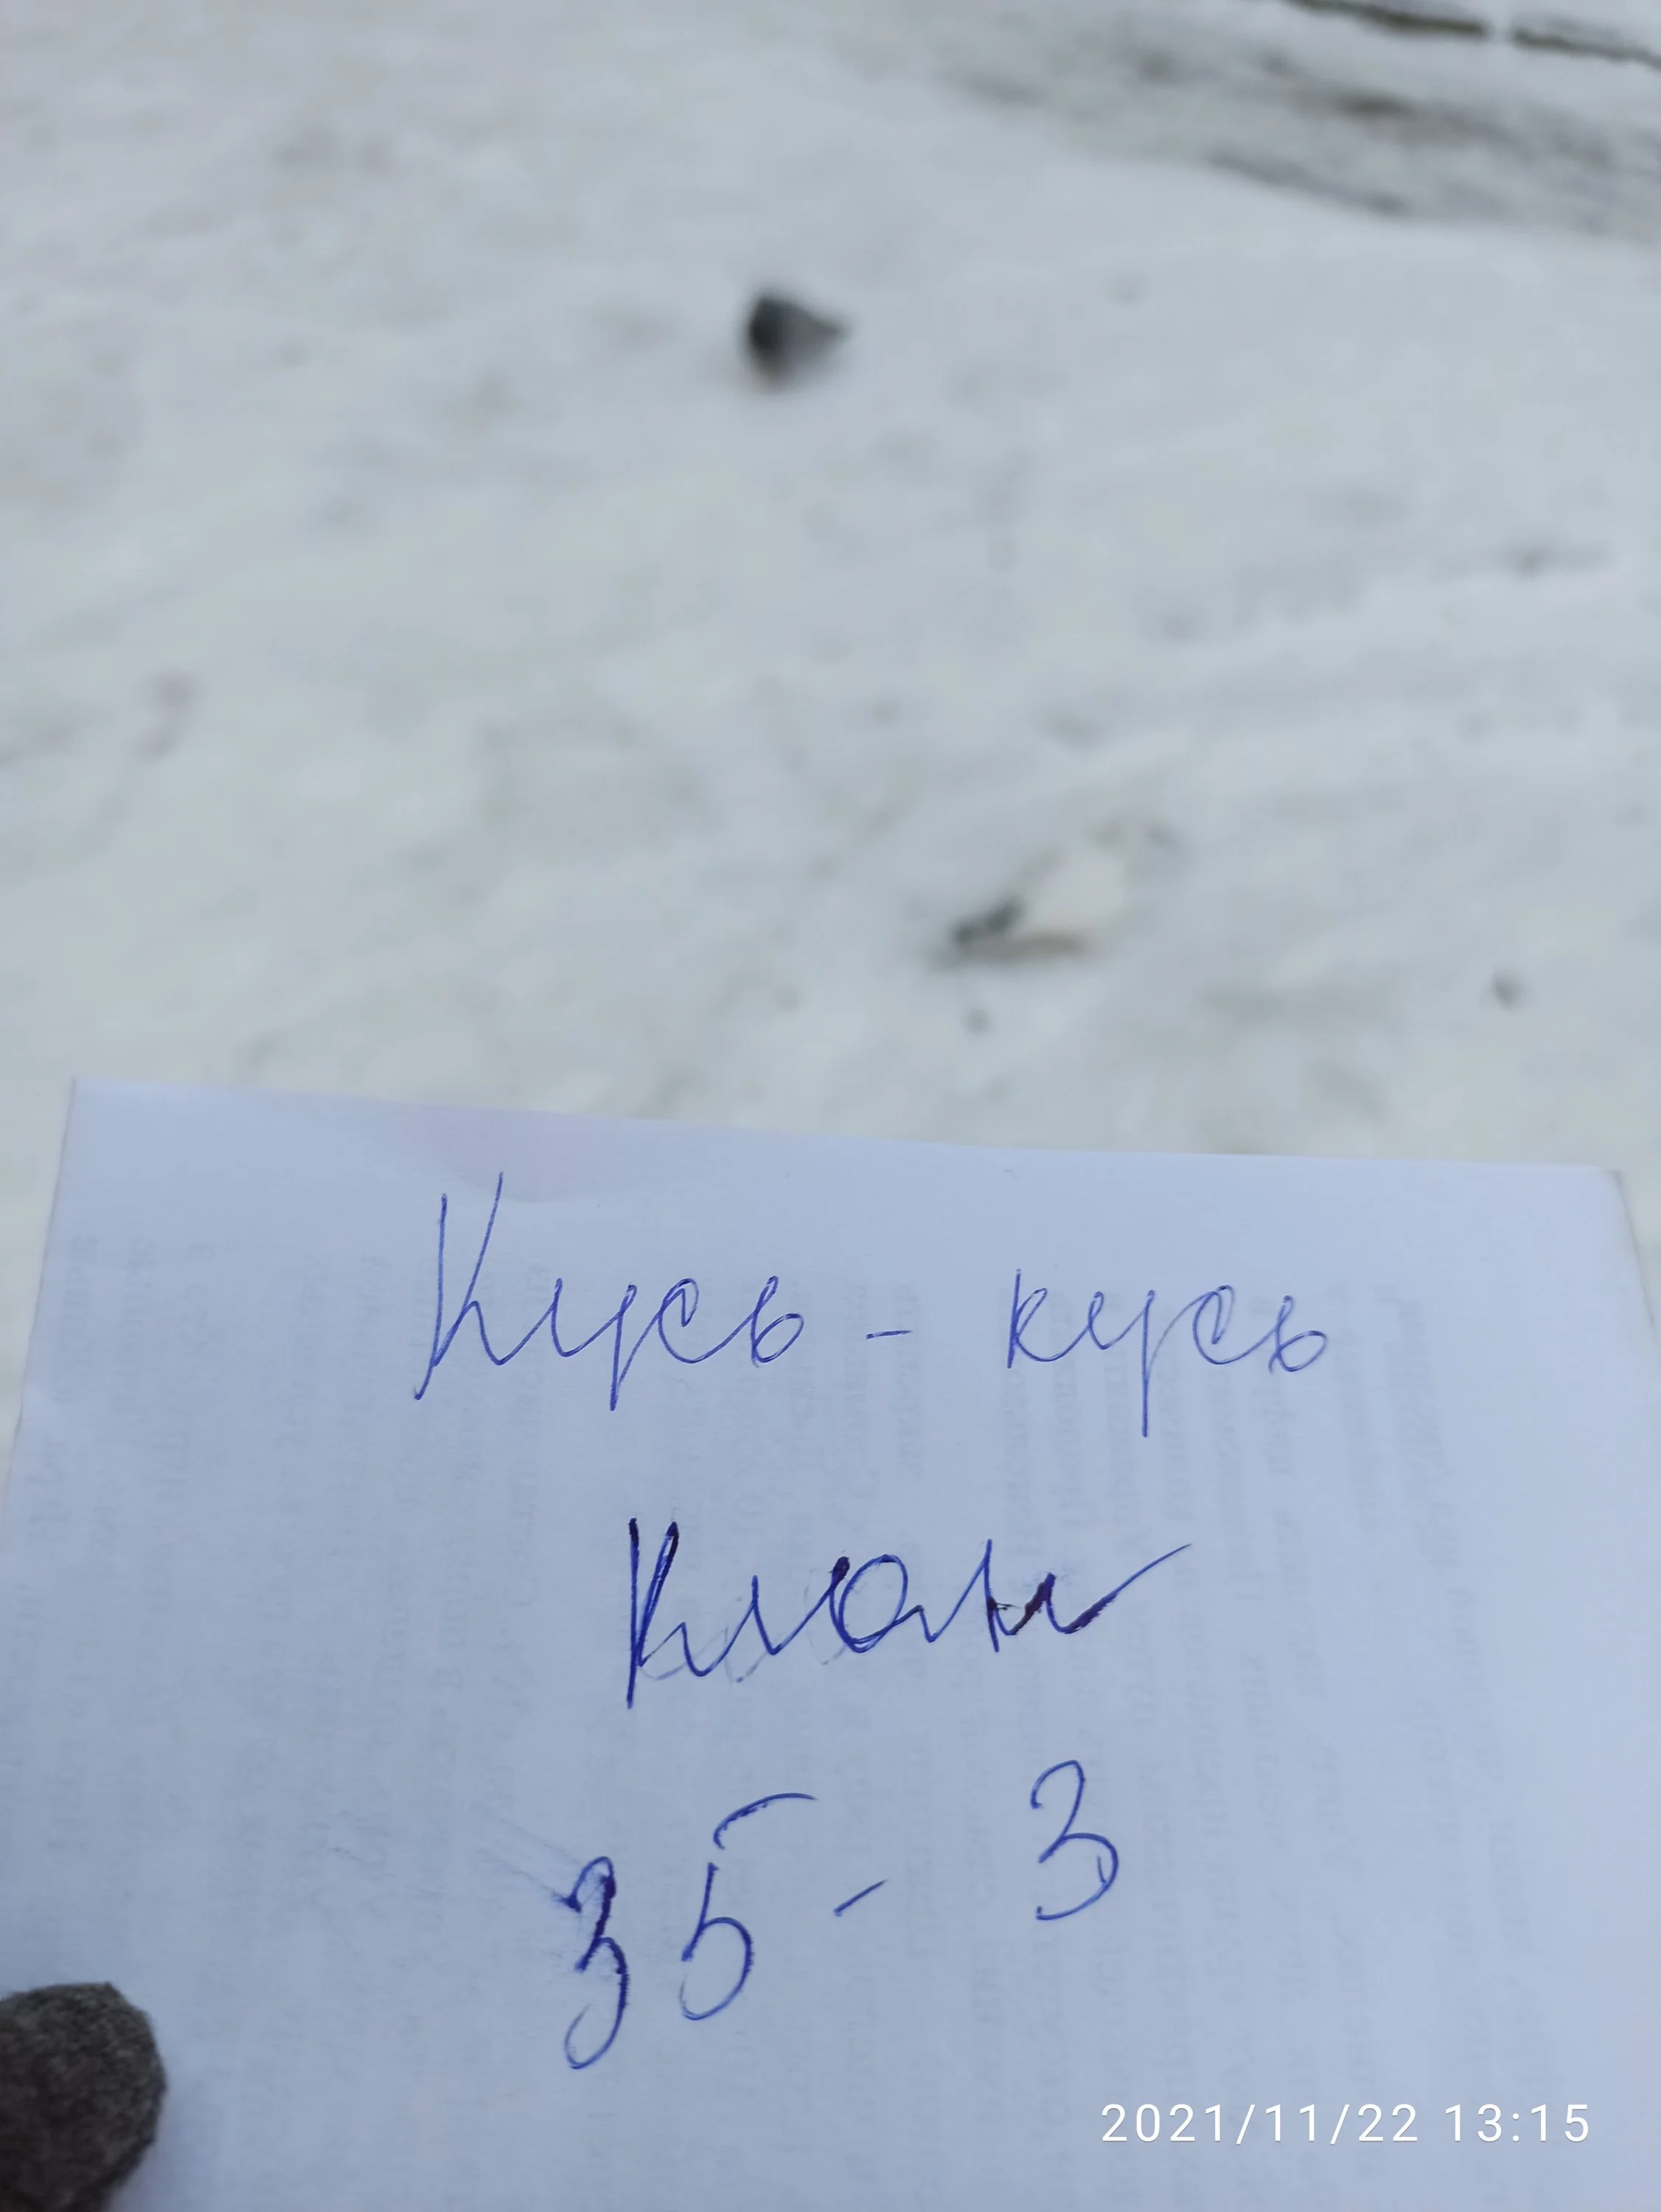 Кусь - кусь
Клан
35 - 3
2021/11/22 13:15